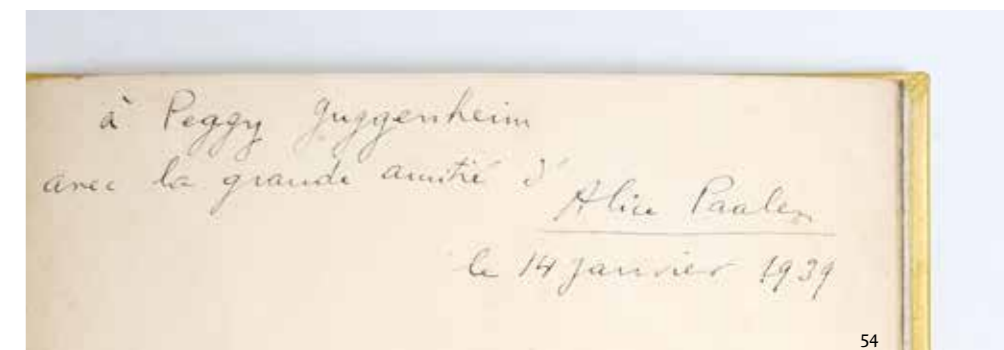 à Peggy Guggenheim
avec la grande amitié d'
Alice Paalen
le 14 janvier 1939
54